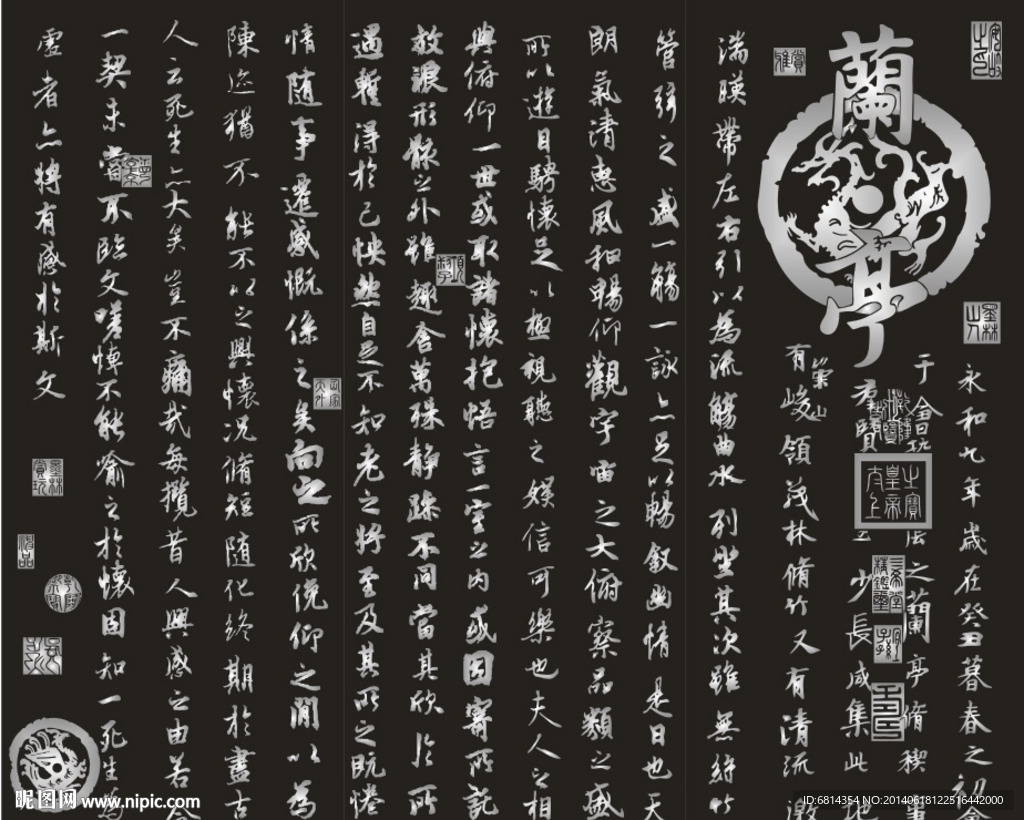 蘭亭
永和九年歲在癸丑暮春之初會
于會稽之蘭亭脩稧事
羣賢少長咸集此地
有崇山峻領茂林脩竹又有清流激
湍暎帶左右引以為流觴曲水列坐其次雖無絲竹
管弦之盛一觴一詠亦足以暢敘幽情是日也天
朗氣清惠風和暢仰觀宇宙之大俯察品類之盛
所以遊目騁懷足以極視聽之娛信可樂也夫人之相
與俯仰一世或取諸懷抱悟言一室之內或因寄所託
放浪形骸之外雖趣舍萬殊靜躁不同當其欣於所
遇蹔得於己怏然自足不知老之將至及其所之既惓
情隨事遷感慨係之矣向之所欣俛仰之間以為
陳迹猶不能不以之興懷況脩短隨化終期於盡古
人云死生亦大矣豈不痛哉每攬昔人興感之由若合
一契未嘗不臨文嗟悼不能喻之於懷固知一死生為
虛者亦將有感於斯文
太上皇帝之寶
墨林山人
昵图网 www.nipic.com
ID:6814354 NO:20140618122516442000